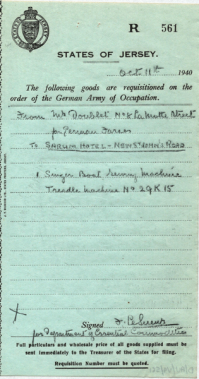 R 561
STATES OF JERSEY.
Oct 11th 1940
The following goods are requisitioned on the
order of the German Army of Occupation.
From Mr Doublet No 8 La Motte Street
for German Forces
To SARUM HOTEL - NEW ST JOHN'S ROAD
1 Singer Boat Sewing Machine
Treadle Machine No 29K15
X
Signed
for Department of Essential Commodities
Full particulars and wholesale price of all goods supplied must be
sent immediately to the Treasurer of the States for filing.
Requisition Number must be quoted.